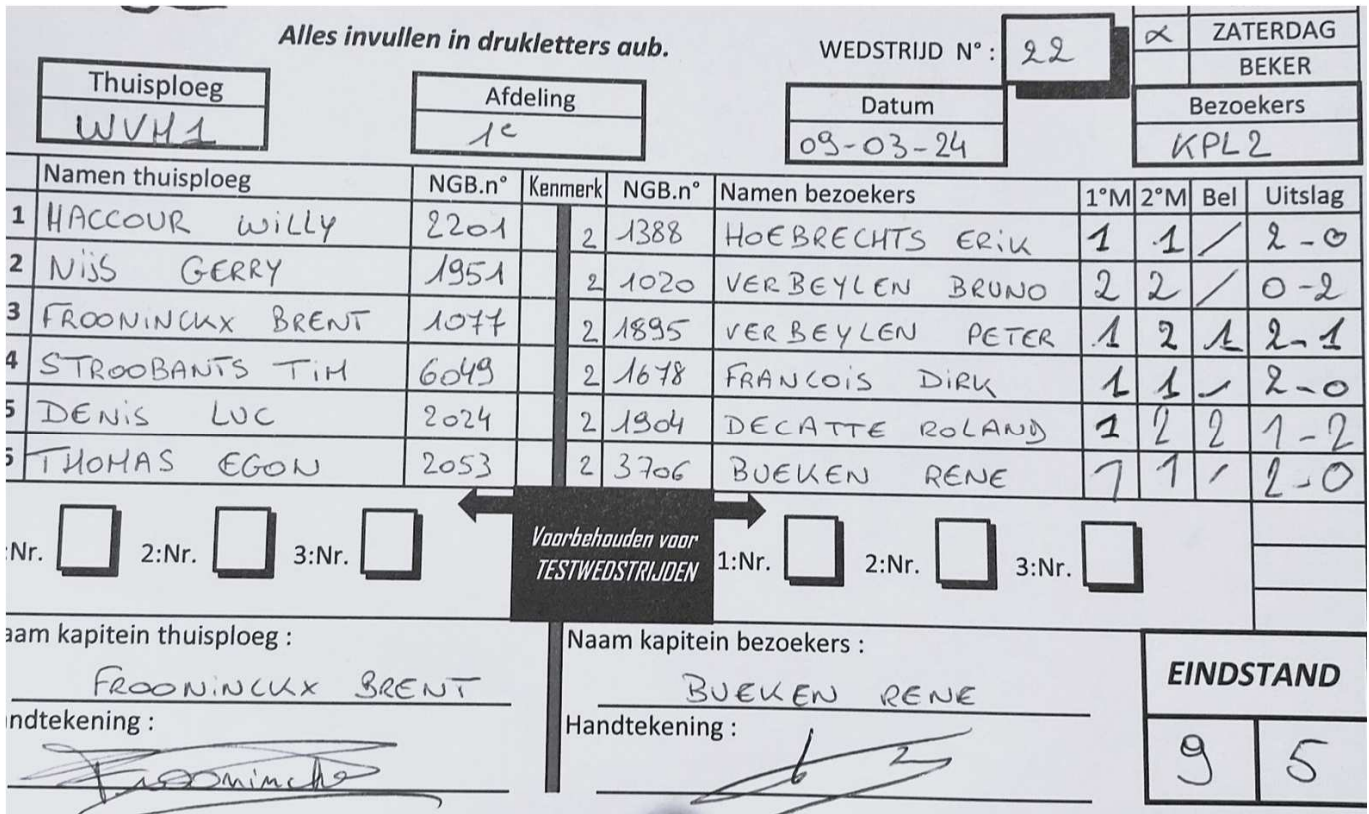 Alles invullen in drukletters aub.
WEDSTRIJD N° : 22
∝ ZATERDAG
BEKER
Thuisploeg
WVH1
Afdeling
1e
Datum
09-03-24
Bezoekers
KPL2
Namen thuisploeg NGB.n° Kenmerk NGB.n° Namen bezoekers 1°M 2°M Bel Uitslag
1 HACCOUR WILLY 2201 2 1388 HOEBRECHTS ERIK 1 1 / 2-0
2 NIJS GERRY 1951 2 1020 VERBEYLEN BRUNO 2 2 / 0-2
3 FROONINCKX BRENT 1077 2 1895 VERBEYLEN PETER 1 2 1 2-1
4 STROOBANTS TIM 6049 2 1678 FRANCOIS DIRK 1 1 / 2-0
5 DENIS LUC 2024 2 1904 DECATTE ROLAND 1 2 2 1-2
THOMAS EGON 2053 2 3706 BUEKEN RENE 1 1 / 2-0
:Nr. 2:Nr. 3:Nr.
Voorbehouden voor
TESTWEDSTRIJDEN
1:Nr. 2:Nr. 3:Nr.
aam kapitein thuisploeg :
FROONINCKX BRENT
ndtekening :
Naam kapitein bezoekers :
BUEKEN RENE
Handtekening :
EINDSTAND
9 5